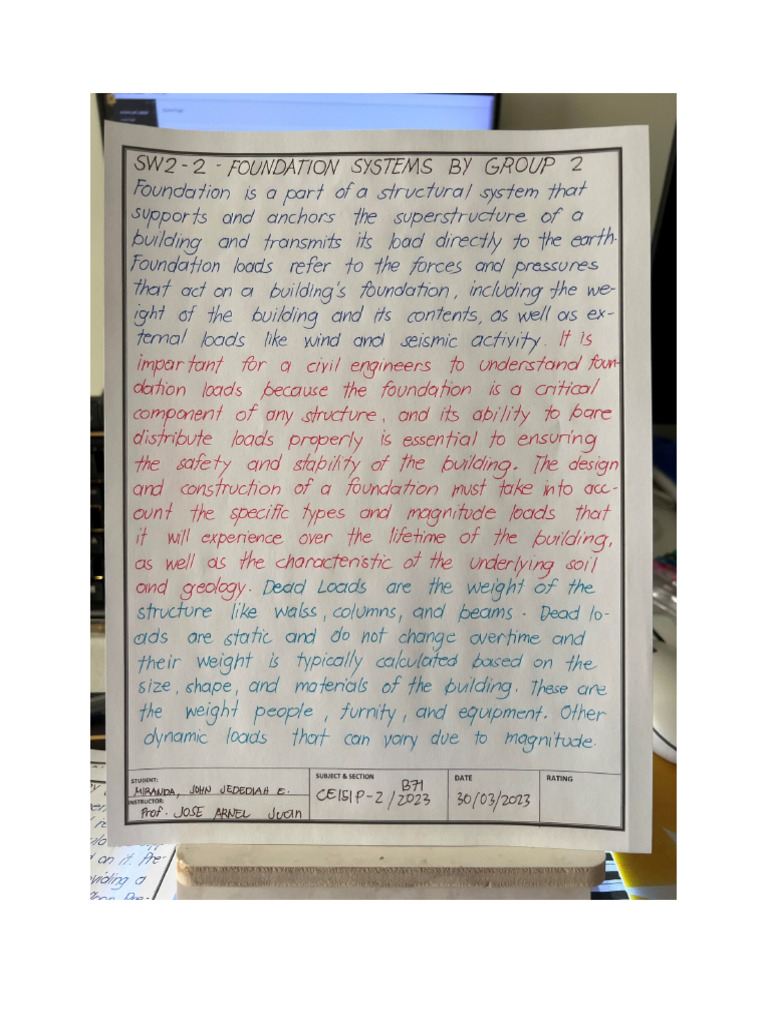 SW2-2 - FOUNDATION SYSTEMS BY GROUP 2
Foundation is a part of a structural system that
supports and anchors the superstructure of a
building and transmits its load directly to the earth.
Foundation loads refer to the forces and pressures
that act on a building's foundation, including the we-
ight of the building and its contents, as well as ex-
ternal loads like wind and seismic activity. It is
important for a civil engineers to understand foun-
dation loads because the foundation is a critical
component of any structure, and its ability to bare
distribute loads properly is essential to ensuring
the safety and stability of the building. The design
and construction of a foundation must take into acc-
ount the specific types and magnitude loads that
it will experience over the lifetime of the building,
as well as the characteristic of the underlying soil
and geology. Dead Loads are the weight of the
structure like walss, columns, and beams. Dead lo-
ads are static and do not change overtime and
their weight is typically calculated based on the
size, shape, and materials of the building. These are
the weight people, furnity, and equipment. Other
dynamic loads that can vary due to magnitude.
STUDENT:
MIRANDA, JOHN JEDEDIAH E.
INSTRUCTOR:
Prof. JOSE ARNEL Juan
SUBJECT & SECTION
CE151P-2 / B71
2023
DATE
30/03/2023
RATING
on it. Pre-
viding a